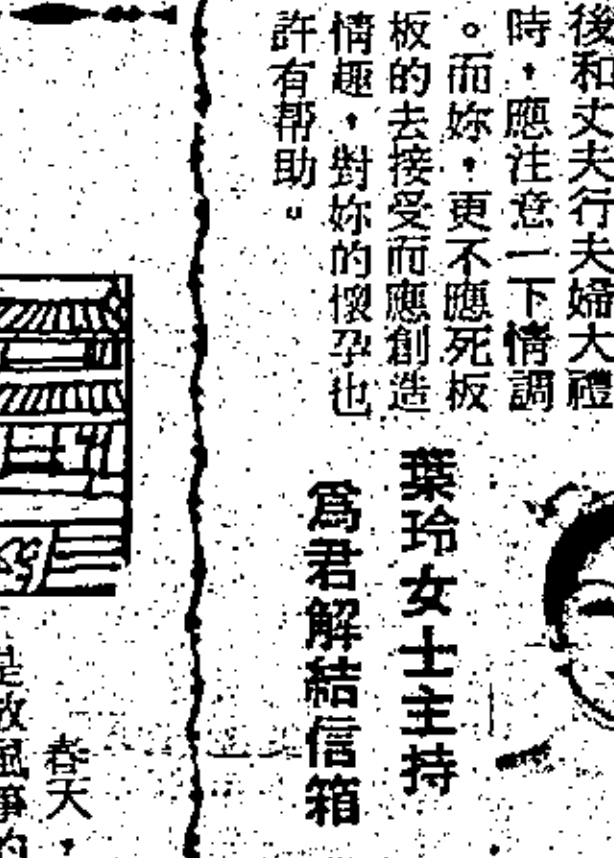 後和丈夫行夫婦大禮
時，應注意一下情調
。而妳，更不應死板
板的去接受而應創造
情趣，對妳的懷孕也
許有幫助。
葉玲女士主持
爲君解結信箱
春天，
是放風箏的